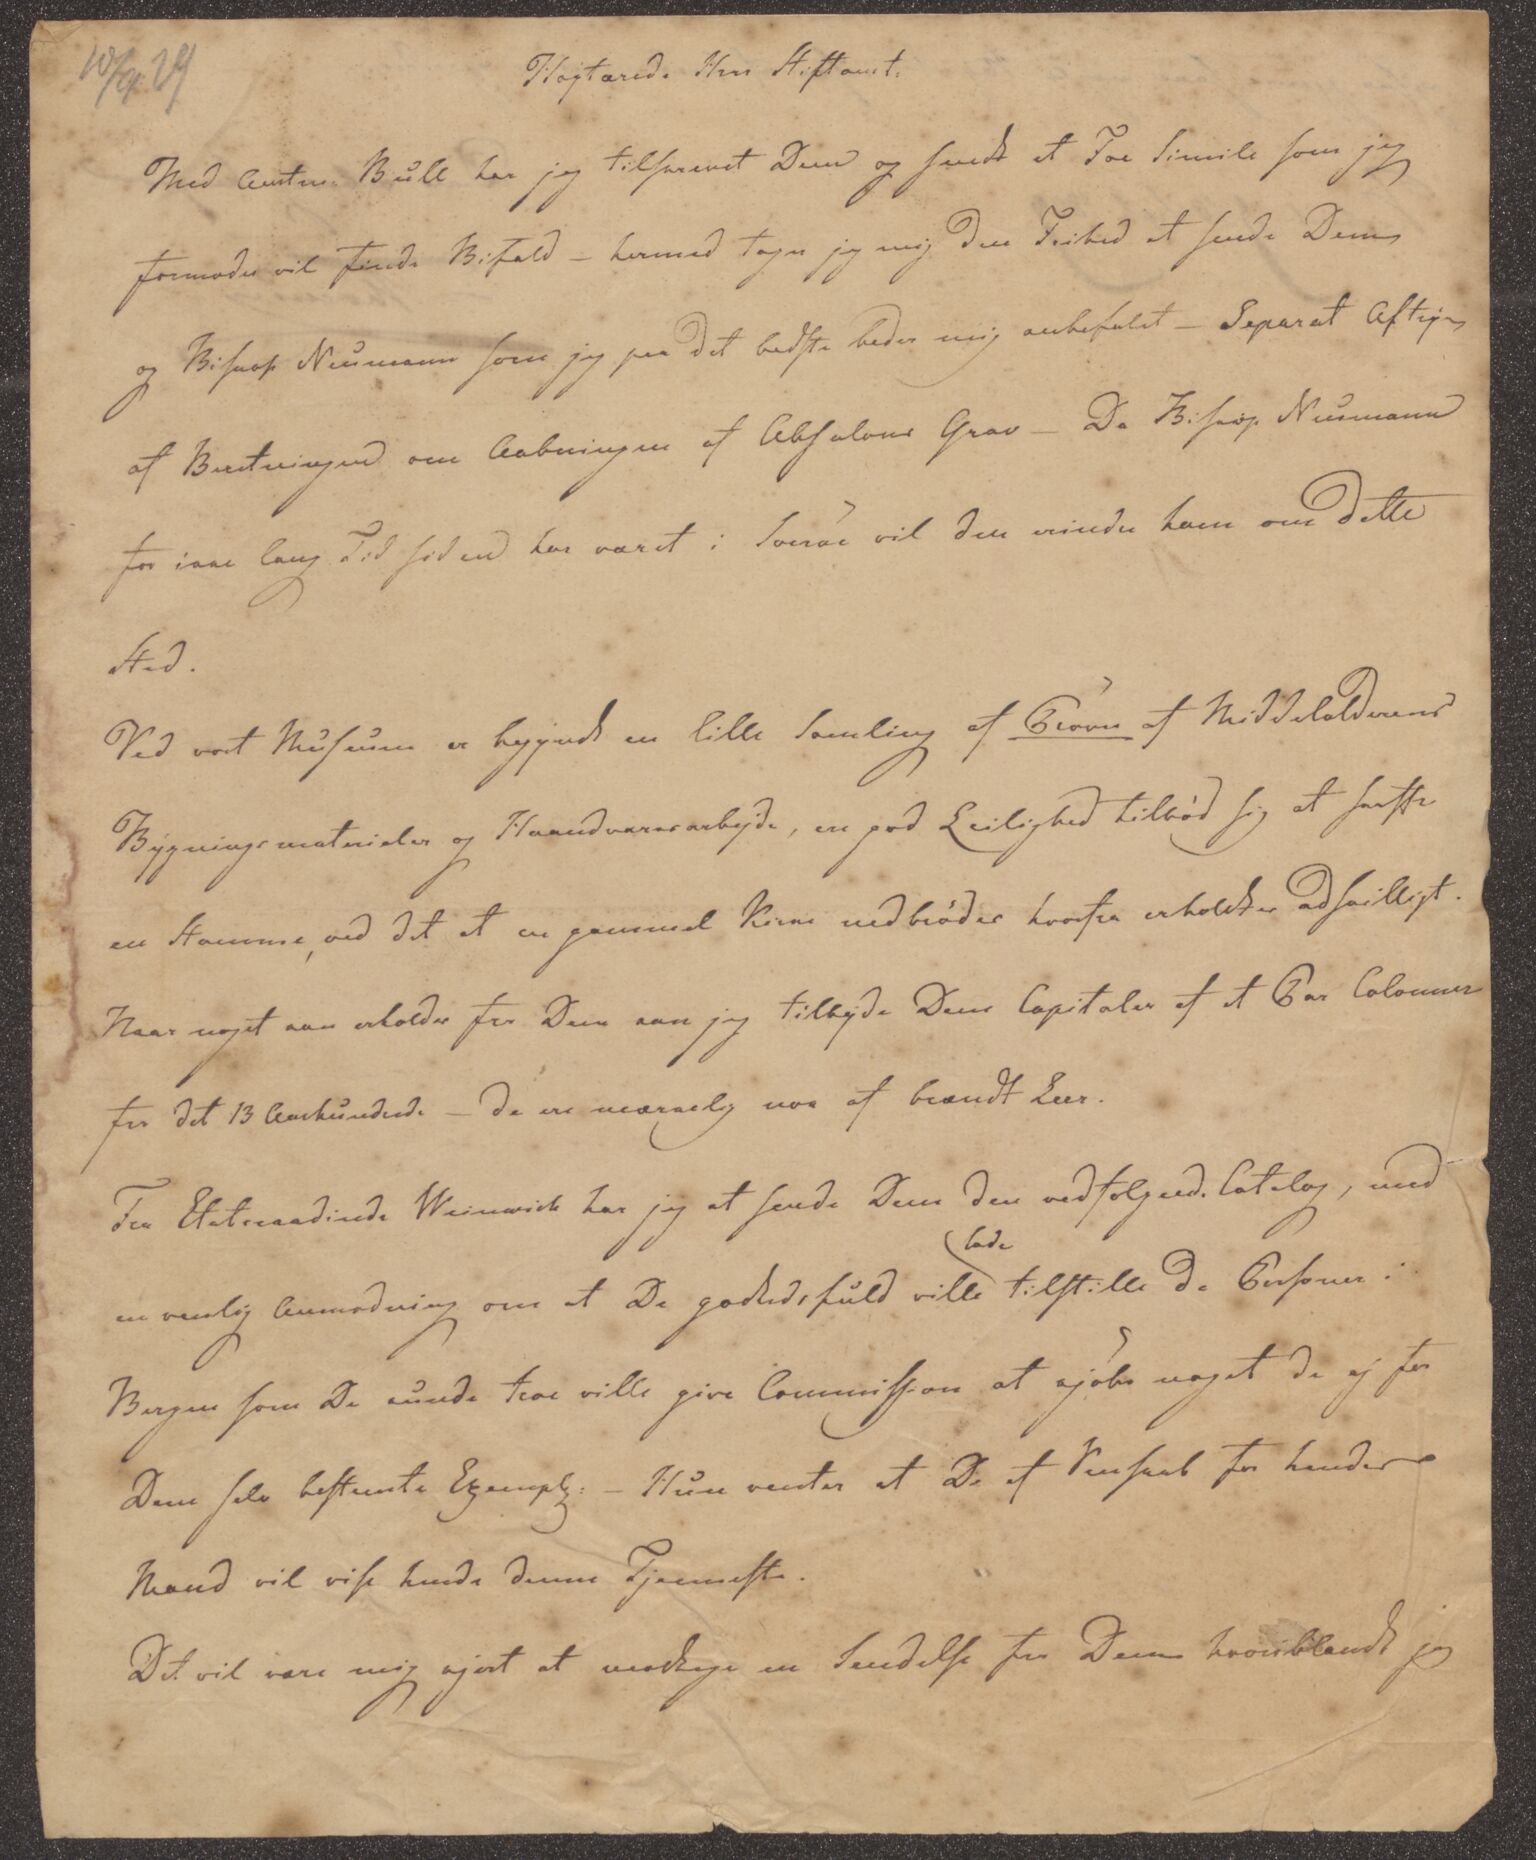 10/9 29
Højtærede Herr Stiftamt.
Med Amtm: Bull har jeg tilskrevet Dem og sendt et Fac Simile som jeg
formoder vil finde Bifald – hermed tager jeg mig den Frihed at sende Dem
og Biskop Neumann som jeg paa det bedste beder mig anbefalet – Separat Aftryk
af Beretningen om Aabningen af Absalons Grav – Da Biskop Neumann
for ikke lang Tid siden har været i Soeröe vil den erindre ham om dette
Sted.
Ved vort Museum er begyndt en lille Samling af Pröver af Middelalderens
Bygningsmaterialer og Haandværksarbejde, en god Leilighed tilböd sig at skaffe
en Stamme, ved det at en gammel Kirke nedbröder hvorfra erholdtes adskilligt.
Naar noget kan erholdes fra Dem kan jeg tilbyde Dem Capitaler af et Par Colonner
fra det 13 Aarhundrede – de ere mærkelig nok af brændt Leer.
Fra Etatsraadinde Weinwich har jeg at sende Dem den vedfølgende Catalog, med
lade
en venlig Anmodning om at De godhedsfuld ville tilstille de Personer i
Bergen som De kunde troe ville give Commission at kjöbe noget de ej for
Dem selv bestemte Exempl: – Hun venter at De af Venskab for hendes
Mand vil vise hende denne Tjenneste.
Det vil være mig kjert at modtage en Sendelse fra Dem hvoriblandt jeg